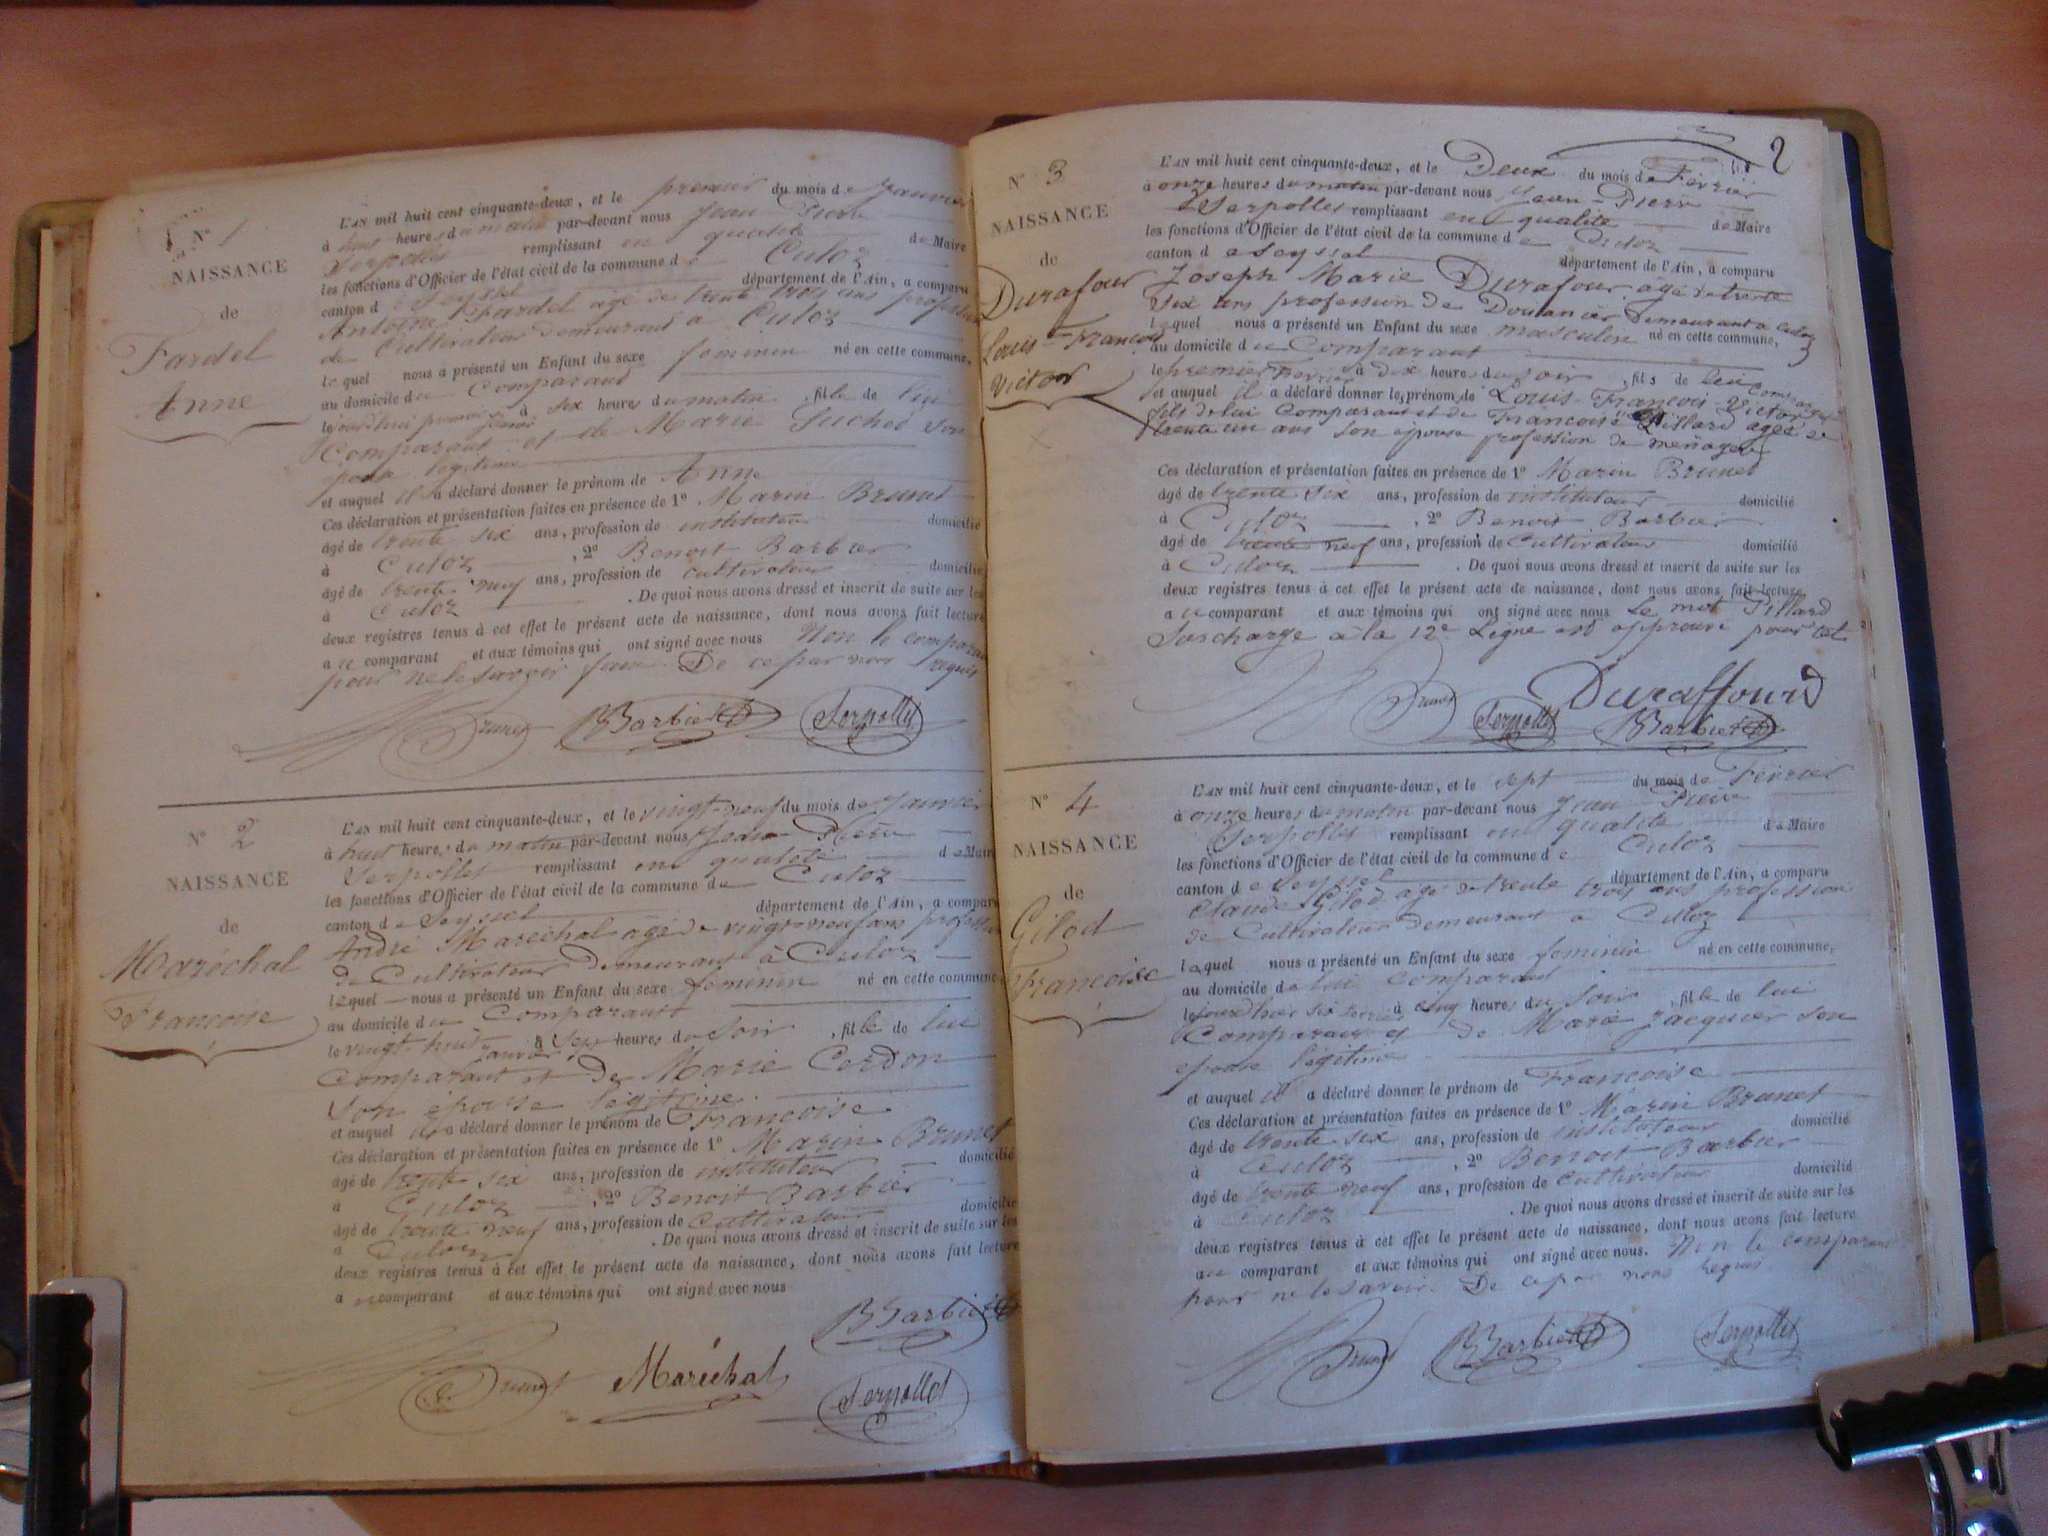 N° 1
NAISSANCE
de
Fardel
Anne
L'AN mil huit cent cinquante-deux, et le premier du mois de Janvier
à huit heures du matin par-devant nous Jean-Pierre
Serpollet remplissant en qualité de Maire
les fonctions d'Officier de l'état civil de la commune de Culoz
canton de Seyssel département de l'Ain, a comparu
Antoine Fardel agé de trente trois ans profession
de Cultivateur demeurant à Culoz
lequel nous a présenté un Enfant du sexe féminin né en cette commune,
au domicile du Comparant
le jourd'hui premier janvier à six heures du matin, fille de lui
Comparant et de Marie Suchet son
épouse légitime
et auquel il a déclaré donner le prénom de Anne
Ces déclaration et présentation faites en présence de 1° Marin Brunet
âgé de trente six ans, profession de instituteur domicilié
à Culoz, 2° Benoit Barbier
âgé de trente neuf ans, profession de cultivateur domicilié
à Culoz. De quoi nous avons dressé et inscrit de suite sur les
deux registres tenus à cet effet le présent acte de naissance, dont nous avons fait lecture
au comparant et aux témoins qui ont signé avec nous Non le comparant
pour ne le savoir faire. De ce par nous requis
Brunet BBarbier Serpollet
N° 2
NAISSANCE
de
Maréchal
Françoise
L'AN mil huit cent cinquante-deux, et le vingt-neuf du mois de Janvier
à huit heures du matin par-devant nous Jean-Pierre
Serpollet remplissant en qualité de Maire
les fonctions d'Officier de l'état civil de la commune de Culoz
canton de Seyssel département de l'Ain, a comparu
André Maréchal agé de vingt-neuf ans profession
de Cultivateur demeurant à Culoz
lequel nous a présenté un Enfant du sexe féminin né en cette commune,
au domicile du Comparant
le vingt-huit janvier à six heures du soir, fille de lui
Comparant et de Marie Cerdon
Son épouse légitime
et auquel il a déclaré donner le prénom de Françoise
Ces déclaration et présentation faites en présence de 1° Marin Brunet
âgé de trente six ans, profession de instituteur domicilié
à Culoz, 2° Benoit Barbier
âgé de trente neuf ans, profession de Cultivateur domicilié
à Culoz. De quoi nous avons dressé et inscrit de suite sur les
deux registres tenus à cet effet le présent acte de naissance, dont nous avons fait lecture
au comparant et aux témoins qui ont signé avec nous
BBarbier
Brunet Maréchal Serpollet
2
N° 3
NAISSANCE
de
Durafour
Louis-François
Victor
L'AN mil huit cent cinquante-deux, et le Deux du mois de Février
à onze heures du matin par-devant nous Jean-Pierre
Serpollet remplissant en qualité de Maire
les fonctions d'Officier de l'état civil de la commune de Culoz
canton de Seyssel département de l'Ain, a comparu
Joseph Marie Durafour agé de trente
six ans profession de Douanier demeurant a Culoz
lequel nous a présenté un Enfant du sexe masculin né en cette commune,
au domicile du Comparant
le premier Février à dix heures du soir, fils de lui comparant
et auquel il a déclaré donner le prénom de Louis-François-Victor
fils de lui Comparant et de Françoise Pillard agée de
trente un ans son épouse profession de ménagère
Ces déclaration et présentation faites en présence de 1° Marin Brunet
âgé de trente six ans, profession de instituteur domicilié
à Culoz, 2° Benoit Barbier
âgé de trente neuf ans, profession de Cultivateur domicilié
à Culoz. De quoi nous avons dressé et inscrit de suite sur les
deux registres tenus à cet effet le présent acte de naissance, dont nous avons fait lecture
au comparant et aux témoins qui ont signé avec nous Le mot Pillard
Surchargé a la 12e Ligne est approuvé pour tel
Brunet Serpollet Duraffourd
BBarbier
N° 4
NAISSANCE
de
Gilod
Françoise
L'AN mil huit cent cinquante-deux, et le sept du mois de Février
à onze heures du matin par-devant nous Jean-Pierre
Serpollet remplissant en qualité de Maire
les fonctions d'Officier de l'état civil de la commune de Culoz
canton de Seyssel département de l'Ain, a comparu
Claude Gilod agé de trente trois ans profession
de Cultivateur demeurant a Culoz
lequel nous a présenté un Enfant du sexe féminin né en cette commune,
au domicile de lui comparant
le jour d'hier six février à cinq heures du soir, fille de lui
Comparant et de Marie Jacquier son
épouse légitime
et auquel il a déclaré donner le prénom de Françoise
Ces déclaration et présentation faites en présence de 1° Marin Brunet
âgé de trente six ans, profession de instituteur domicilié
à Culoz, 2° Benoit Barbier
âgé de trente neuf ans, profession de Cultivateur domicilié
à Culoz. De quoi nous avons dressé et inscrit de suite sur les
deux registres tenus à cet effet le présent acte de naissance, dont nous avons fait lecture
au comparant et aux témoins qui ont signé avec nous. Non le comparant
pour ne le savoir. De ce par nous requis
Brunet BBarbier Serpollet